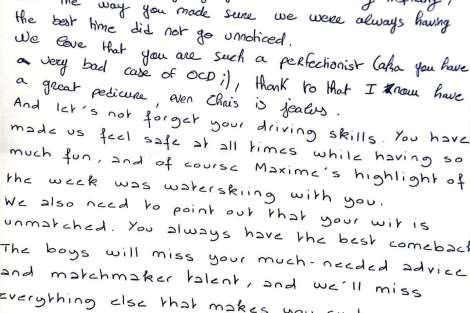 The way you made sure we were always having
the best time did not go unnoticed.
We love that you are such a perfectionist (aka you have
a very bad case of OCD ;), thank to that I know have
a great pedicure, even Chris is jealous.
And let's not forget your driving skills. You have
made us feel safe at all times while having so
much fun, and of course Maxime's highlight of
the week was waterskiing with you.
We also need to point out that your wit is
unmatched. You always have the best comeback
The boys will miss your much-needed advice
and matchmaker talent, and we'll miss
everything else that makes you